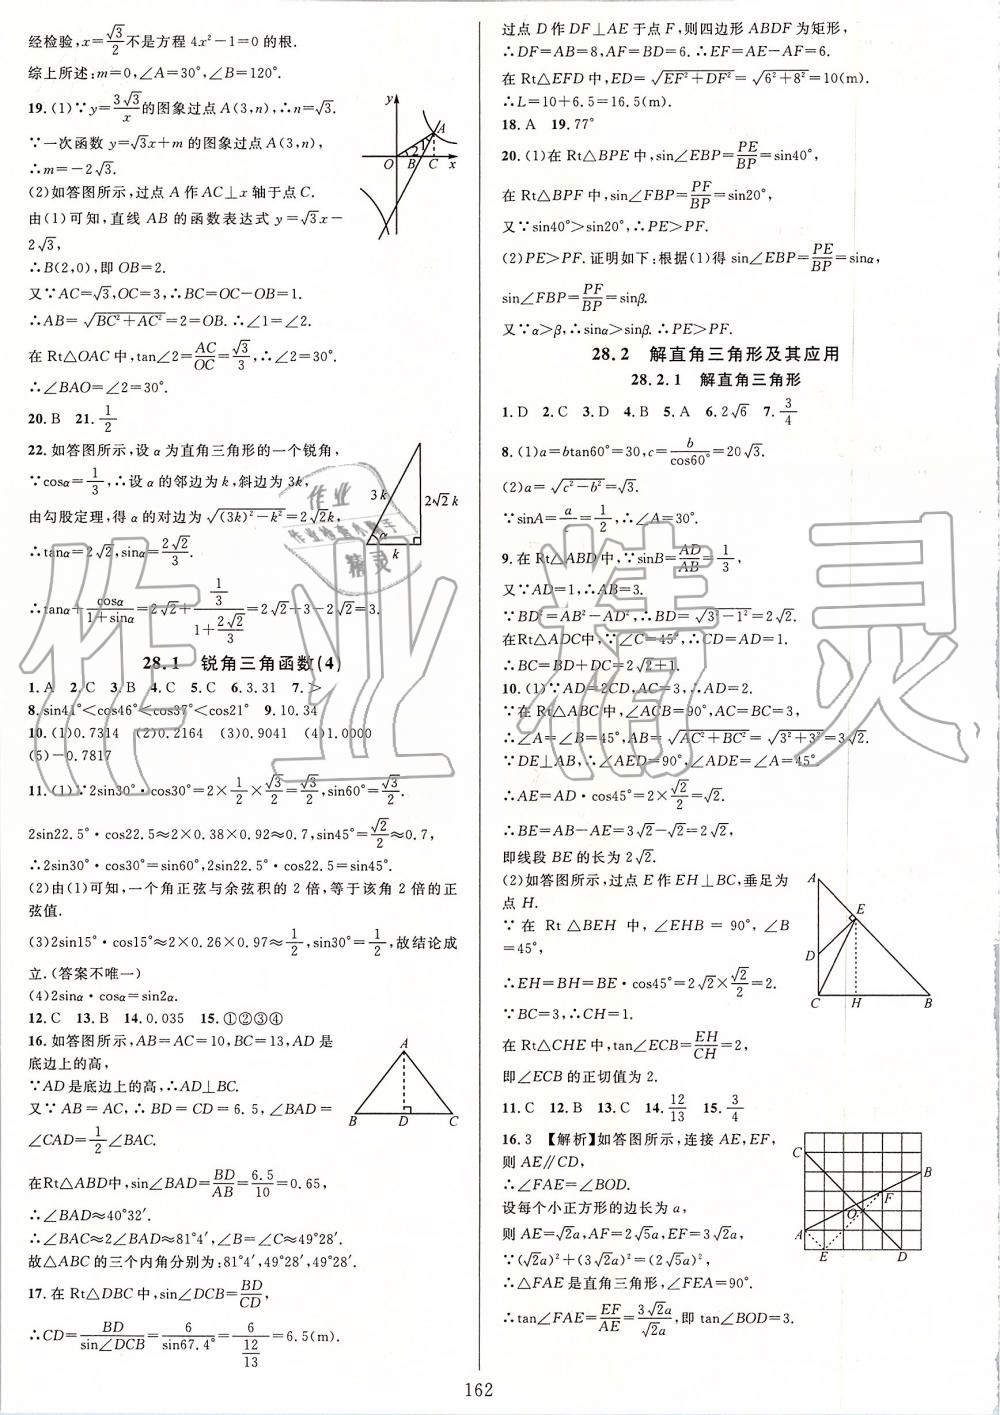 经检验,x=√3/2不是方程 4x²-1=0的根.
综上所述:m=0,∠A=30°,∠B=120°.
19.(1)∵y=3√3/x的图象过点A(3,n),∴n=√3.
∵一次函数 y=√3x+m 的图象过点A(3,n),
∴m=-2√3.
(2)如答图所示,过点A作AC⊥x轴于点C.
由(1)可知,直线 AB 的函数表达式 y=√3x-
2√3,
∴B(2,0),即 OB=2.
又∵AC=√3,OC=3,∴BC=OC-OB=1.
∴AB=√(BC²+AC²)=2=OB.∴∠1=∠2.
在 Rt△OAC 中,tan∠2=AC/OC=√3/3,∴∠2=30°.
∴∠BAO=∠2=30°.
20.B 21.1/2
22.如答图所示,设α为直角三角形的一个锐角,
∵cosα=1/3,∴设α的邻边为k,斜边为3k,
由勾股定理,得α的对边为√((3k)²-k²)=2√2k.
∴tanα=2√2,sinα=2√2/3.
∴tanα+cosα/(1+sinα)=2√2+(1/3)/(1+2√2/3)=2√2+3-2√2=3.
28.1 锐角三角函数(4)
1.A 2.C 3.B 4.C 5.C 6.3.31 7.>
8.sin41°<cos46°<cos37°<cos21° 9.10.34
10.(1)0.7314 (2)0.2164 (3)0.9041 (4)1.0000
(5)-0.7817
11.(1)∵2sin30°·cos30°=2×1/2×√3/2=√3/2,sin60°=√3/2.
2sin22.5°·cos22.5≈2×0.38×0.92≈0.7,sin45°=√2/2≈0.7,
∴2sin30°·cos30°=sin60°,2sin22.5°·cos22.5=sin45°.
(2)由(1)可知,一个角正弦与余弦积的2倍,等于该角2倍的正
弦值.
(3)2sin15°·cos15°≈2×0.26×0.97≈1/2,sin30°=1/2,故结论成
立.(答案不唯一)
(4)2sinα·cosα=sin2α.
12.C 13.B 14.0.035 15.①②③④
16.如答图所示,AB=AC=10,BC=13,AD是
底边上的高,
∵AD是底边上的高,∴AD⊥BC.
又∵ AB=AC,∴ BD=CD=6.5,∠BAD=
∠CAD=1/2∠BAC.
在Rt△ABD中,sin∠BAD=BD/AB=6.5/10=0.65,
∴∠BAD≈40°32′.
∴∠BAC≈2∠BAD≈81°4′,∠B=∠C≈49°28′.
故△ABC的三个内角分别为:81°4′,49°28′,49°28′.
17.在 Rt△DBC 中,sin∠DCB=BD/CD,
∴CD=BD/sin∠DCB=6/sin67.4°=6/(12/13)=6.5(m).
y
A
2
1
O B C x
3k
2√2k
α
k
A
B D C
过点D作DF⊥AE于点F,则四边形ABDF为矩形,
∴DF=AB=8,AF=BD=6.∴EF=AE-AF=6.
在 Rt△EFD 中,ED=√(EF²+DF²)=√(6²+8²)=10(m).
∴L=10+6.5=16.5(m).
18.A 19.77°
20.(1)在 Rt△BPE 中,sin∠EBP=PE/BP=sin40°,
在 Rt△BPF 中,sin∠FBP=PF/BP=sin20°,
又∵sin40°>sin20°,∴PE>PF.
(2)PE>PF.证明如下:根据(1)得 sin∠EBP=PE/BP=sinα,
sin∠FBP=PF/BP=sinβ.
又∵α>β,∴sinα>sinβ.∴PE>PF.
28.2 解直角三角形及其应用
28.2.1 解直角三角形
1.D 2.C 3.D 4.B 5.A 6.2√6 7.3/4
8.(1)a=btan60°=30,c=b/cos60°=20√3.
(2)a=√(c²-b²)=√3.
∵sinA=a/c=1/2,∴∠A=30°.
9.在Rt△ABD中,∵sinB=AD/AB=1/3,
又∵AD=1,∴AB=3.
∵BD²=AB²-AD²,∴BD=√(3²-1²)=2√2.
在Rt△ADC中,∵∠C=45°,∴CD=AD=1.
∴BC=BD+CD=2√2+1.
10.(1)∵AD=2CD,AC=3,∴AD=2.
∵在Rt△ABC中,∠ACB=90°,AC=BC=3,
∴∠A=∠B=45°,AB=√(AC²+BC²)=√(3²+3²)=3√2.
∵DE⊥AB,∴∠AED=90°,∠ADE=∠A=45°.
∴AE=AD·cos45°=2×√2/2=√2.
∴BE=AB-AE=3√2-√2=2√2,
即线段 BE 的长为2√2.
(2)如答图所示,过点E作EH⊥BC,垂足为
点 H.
∵ 在 Rt △BEH 中,∠EHB = 90°,∠B
=45°,
∴EH=BH=BE·cos45°=2√2×√2/2=2.
∵BC=3,∴CH=1.
在 Rt△CHE 中,tan∠ECB=EH/CH=2,
即∠ECB的正切值为2.
11.C 12.B 13.C 14.12/13 15.3/4
16.3 【解析】如答图所示,连接 AE,EF,
则 AE∥CD,
∴∠FAE=∠BOD.
设每个小正方形的边长为a,
则 AE=√2a,AF=2√5a,EF=3√2a,
∵(√2a)²+(3√2a)²=(2√5a)²,
∴△FAE是直角三角形,∠FEA=90°.
∴tan∠FAE=EF/AE=3√2a/√2a=3,即 tan∠BOD=3.
A
E
D
C H B
C
B
F
O
A
E D
162
作业
作业检查小助手
精灵
作业精灵